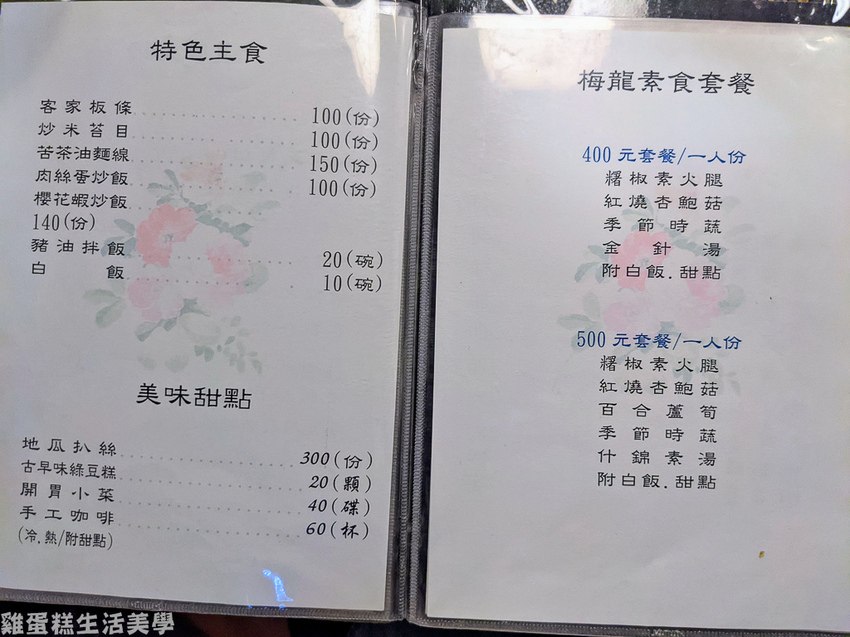 特色主食
客家板條 100(份)
炒米苔目 100(份)
苦茶油麵線 150(份)
肉絲蛋炒飯 100(份)
櫻花蝦炒飯
140(份)
豬油拌飯 20(碗)
白飯 10(碗)
美味甜點
地瓜扒絲 300(份)
古早味綠豆糕 20(顆)
開胃小菜 40(碟)
手工咖啡 60(杯)
(冷.熱/附甜點)
梅龍素食套餐
400元套餐/一人份
糬椒素火腿
紅燒杏鮑菇
季節時蔬
金針湯
附白飯.甜點
500元套餐/一人份
糬椒素火腿
紅燒杏鮑菇
百合蘆筍
季節時蔬
什錦素湯
附白飯.甜點
雞蛋糕生活美學